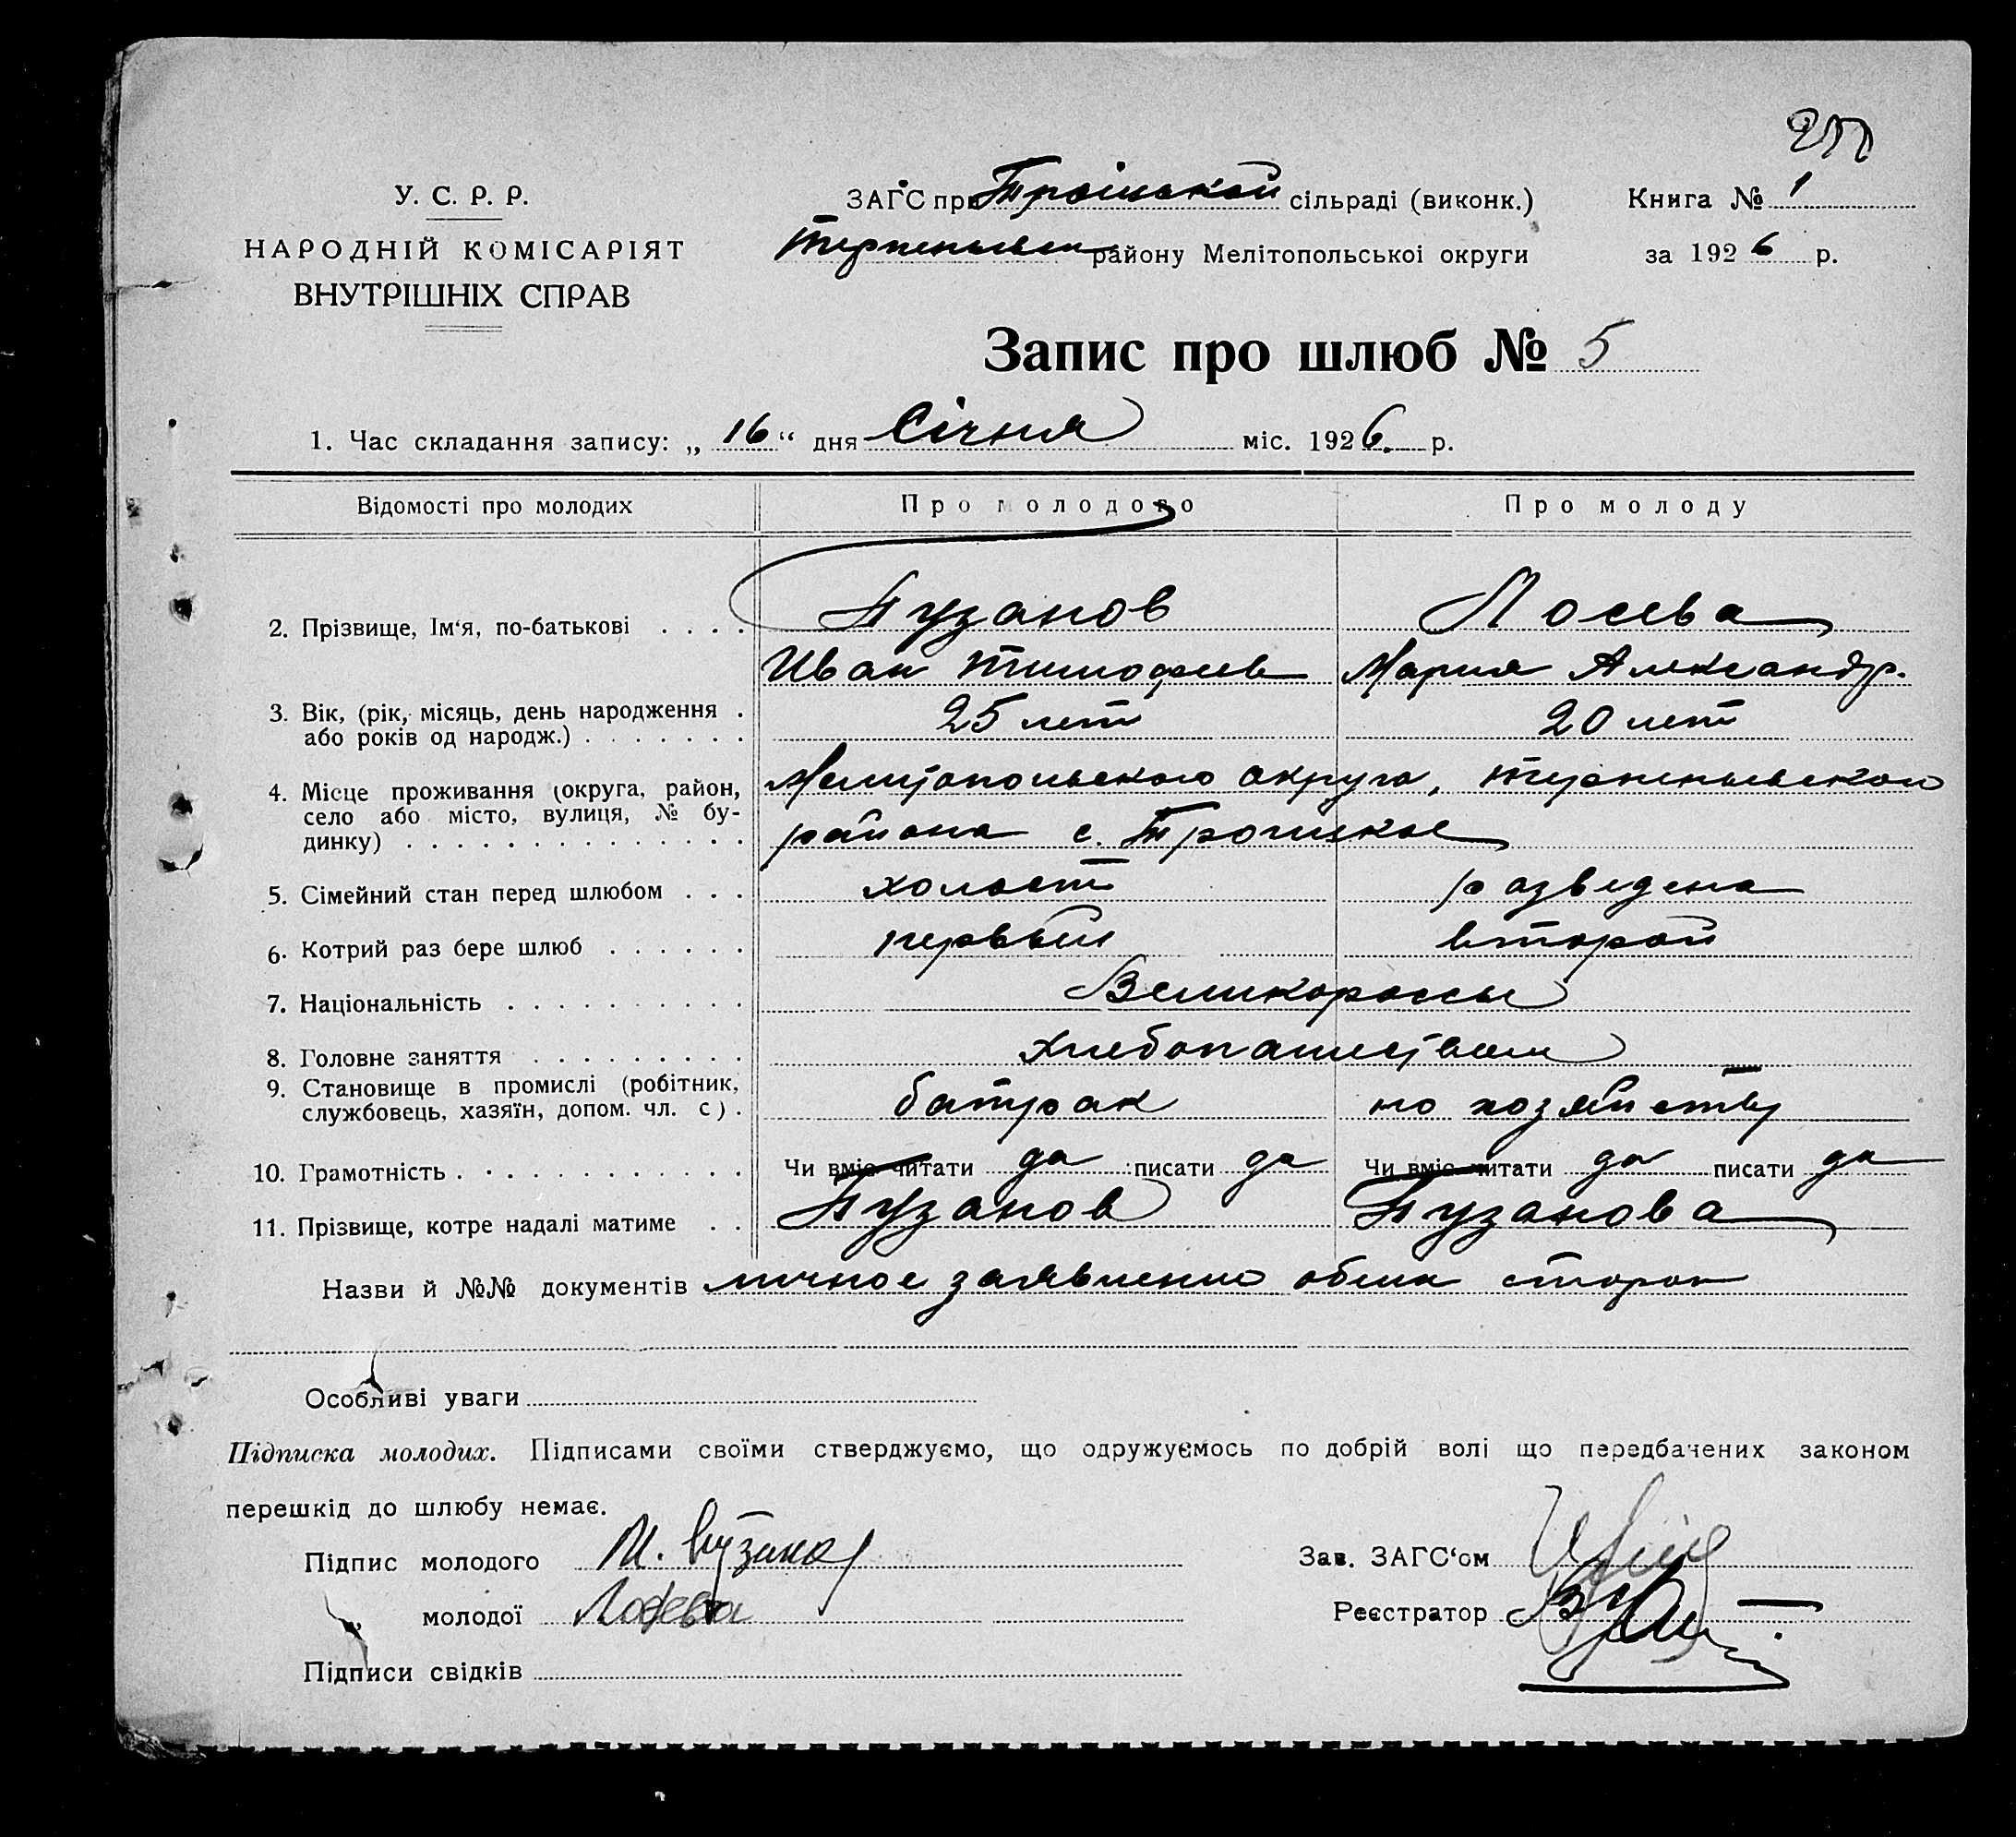 У. С. Р. Р.
НАРОДНІЙ КОМІСАРІЯТ
ВНУТРІШНІХ СПРАВ
ЗАГС при Троіцькой сільраді (виконк.)
району Мелітопольської округи
Книга № 1
за 1926 р.
Запис про шлюб № 5
1. Час складання запису: „ 16 “ дня Січня міс. 1926. р.
Відомості про молодих Про молодого Про молоду
2. Прізвище, Ім‘я, по-батькові . . . . Пузанов Лосева
Иван Тимофеев Мария Александр.
3. Вік, (рік, місяць, день народження . або років од народж.) . . . . . . . 25 лет 20 лет
4. Місце проживання (округа, район, Мелитопольского округа, Терпеньевского
село або місто, вулиця, № бу-
динку) . . . . . . . . . . . . . . района с. Троицкое
5. Сімейний стан перед шлюбом . . . холост разведена
6. Котрий раз бере шлюб . . . . . . первый второй
7. Національність . . . . . . . . . . Великороссы
8. Головне заняття . . . . . . . . . Хлебопашеством
9. Становище в промислі (робітник,
службовець, хазяїн, допом. чл. с) . батрак по хозяйству
10. Грамотність . . . . . . . . . . . Чи вміє читати да писати да Чи вміє читати да писати да
11. Прізвище, котре надалі матиме . . Пузанов Пузанова
Назви й №№ документів личное заявление обеих сторон
Особливі уваги
Підписка молодих. Підписами своїми стверджуємо, що одружуємось по добрій волі що передбачених законом
перешкід до шлюбу немає.
Підпис молодого И. Пузанов
„ молодої Лосева
Підписи свідків
Зав. ЗАГС‘ом
Реєстратор